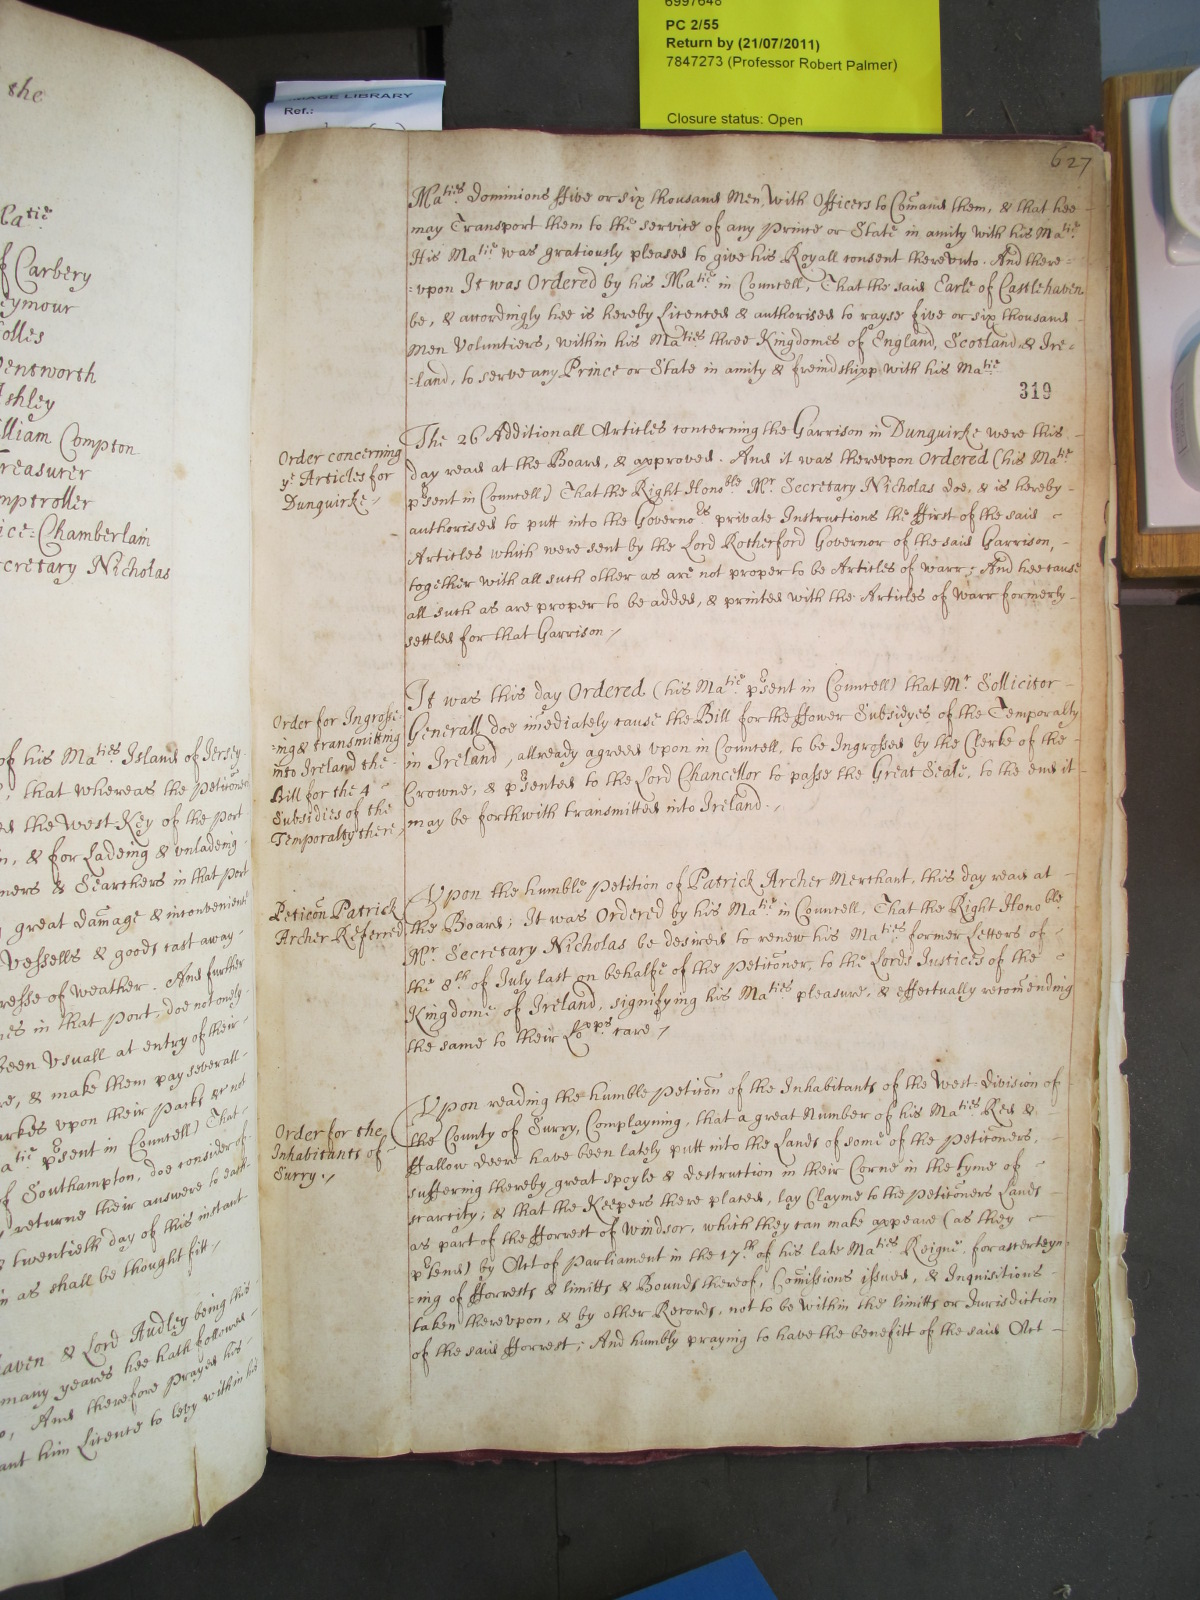 6997648
PC 2/55
Return by (21/07/2011)
7847273 (Professor Robert Palmer)
Closure status: Open
PAGE LIBRARY
Ref.:
the
Matie
f Carbery
eymour
olles
Wentworth
Ashley
lliam Compton
Treasurer
mptroller
ice-Chamberlain
ecretary Nicholas
of his Maties Island of Jersey
, that whereas the Petitioner
ed the West-Key of the Port
n, & for Ladeing & vnladeing
ners & Searchers in that Port
great damage & inconvenience
Vessells & goods cast away
resse of weather. And further
nes in that Port, doe not only
been Vsuall at entry of their
re, & make them pay severall
arkes vpon their Packs or not
atie psent in Councell) That
of Southampton, doe consider of
returne their answere to
twentieth day of this instant
n as shall be thought fitt /
aven & Lord Audley being this
many yeares hee hath followed
, And therefore prayed his
ant him Licence to levy within his
627
Maties Dominions ffive or six thousand Men, with Officers to Comand them, & that hee
may Transport them to the service of any Prince or State in amity with his Matie.
His Matie was gratiously pleased to give his Royall consent therevnto. And there=
=vpon It was Ordered by his Matie in Councell, That the said Earle of Castlehaven
be, & accordingly hee is hereby Licenced & authorised to rayse five or six thousand
Men Voluntiers, within his Maties three Kingdomes of England, Scotland & Ire=
=land, to serve any Prince or State in amity & freindshipp with his Matie
319
Order concerning
ye Articles for
Dunquirke /
The 26 Additionall Articles concerning the Garrison in Dunquirke were this
day read at the Board, & approved. And it was therevpon Ordered (his Matie
psent in Councell) That the Right Honoble Mr. Secretary Nicholas doe, & is hereby
authorised to putt into the Governors private Instructions the ffirst of the said
Articles which were sent by the Lord Rotherford Governor of the said Garrison,
together with all such other as are not proper to be Articles of warr; And hee cause
all such as are proper to be added, & printed with the Articles of warr formerly
settled for that Garrison /
Order for Ingrosse
=ing & transmitting
into Ireland the
Bill for the 4
Subsidies of the
Temporalty there /
It was this day Ordered (his Matie psent in Councell) that Mr Sollicitor
Generall doe imediately cause the Bill for the ffower Subsidyes of the Temporalty
in Ireland, allready agreed vpon in Councell, to be Ingrossed by the Clerke of the
Crowne, & psented to the Lord Chancellor to passe the Great Seale, to the end it
may be forthwith transmitted into Ireland. /
Peticon Patrick
Archer Referred
Vpon the humble Petition of Patrick Archer Merchant, this day read at
the Board; It was Ordered by his Matie in Councell, That the Right Honoble
Mr. Secretary Nicholas be desired to renew his Maties former Letters of
the 8th of July last on behalfe of the Petitoner, to the Lords Justices of the
Kingdome of Ireland, signifying his Maties pleasure, & effectually recomending
the same to their Lopps care /
Order for the
Inhabitants of
Surry. /
Vpon reading the humble Peticon of the Inhabitants of the West-division of
the County of Surry, Complayning, that a great Number of his Maties Red &
ffallow deere have been lately putt into the Lands of some of the Petitoners,
suffering thereby great spoyle & destruction in their Corne in the tyme of
scarcity; & that the Keepers there placed, lay Clayme to the Petitoners Lands
as part of the fforrest of Windsor, which they can make appeare (as they
ptend) by Act of Parliament in the 17th of his late Maties Reigne, for ascerteyn=
=ing of fforrests & limitts & Bounds thereof, Comissions issued, & Inquisitions
taken therevpon, & by other Records, not to be within the limitts or Jurisdiction
of the said fforrest; And humbly praying to have the benefitt of the said Act